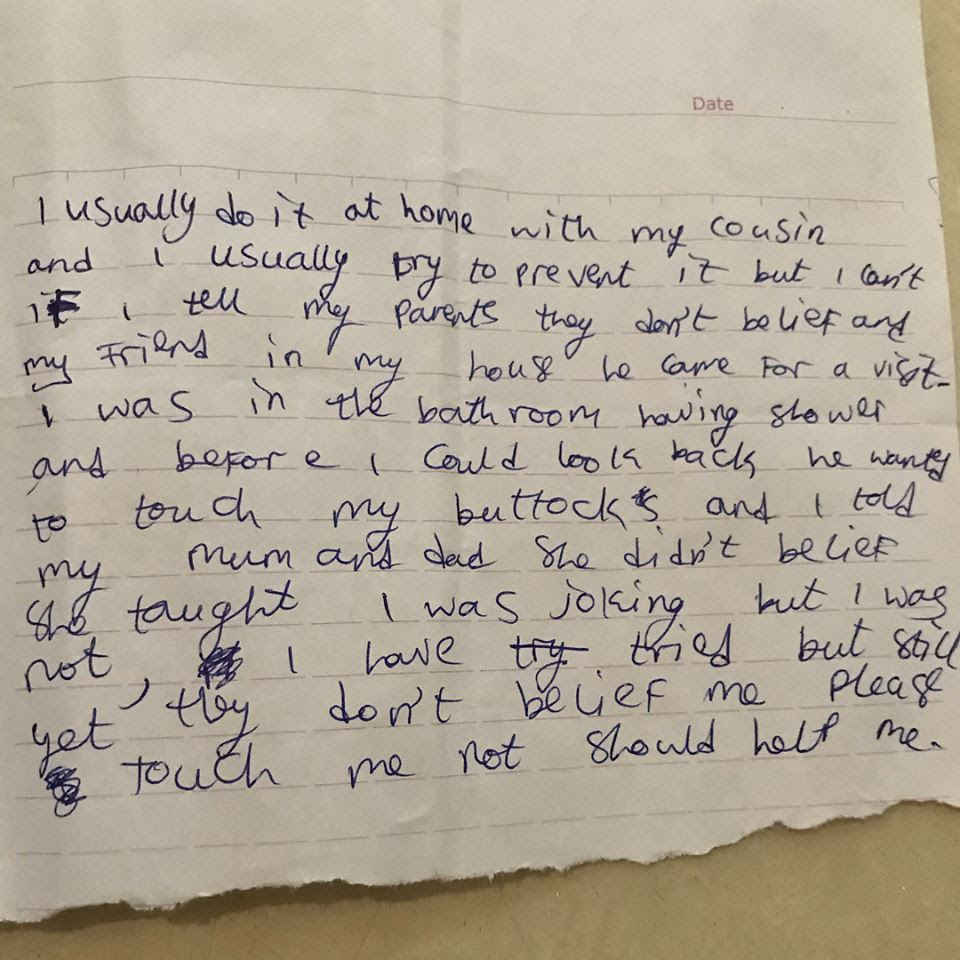 Date
I usually do it at home with my cousin
and I usually try to prevent it but I can't
if I tell my parents they don't belief and
my Friend in my house he came For a visit
I was in the bathroom having shower
and before I could look back he wanted
to touch my buttocks and I told
my mum and dad she didn't belief
she taught I was joking but I was
not, I have try tried but still
yet they don't belief me please
touch me not should help me.